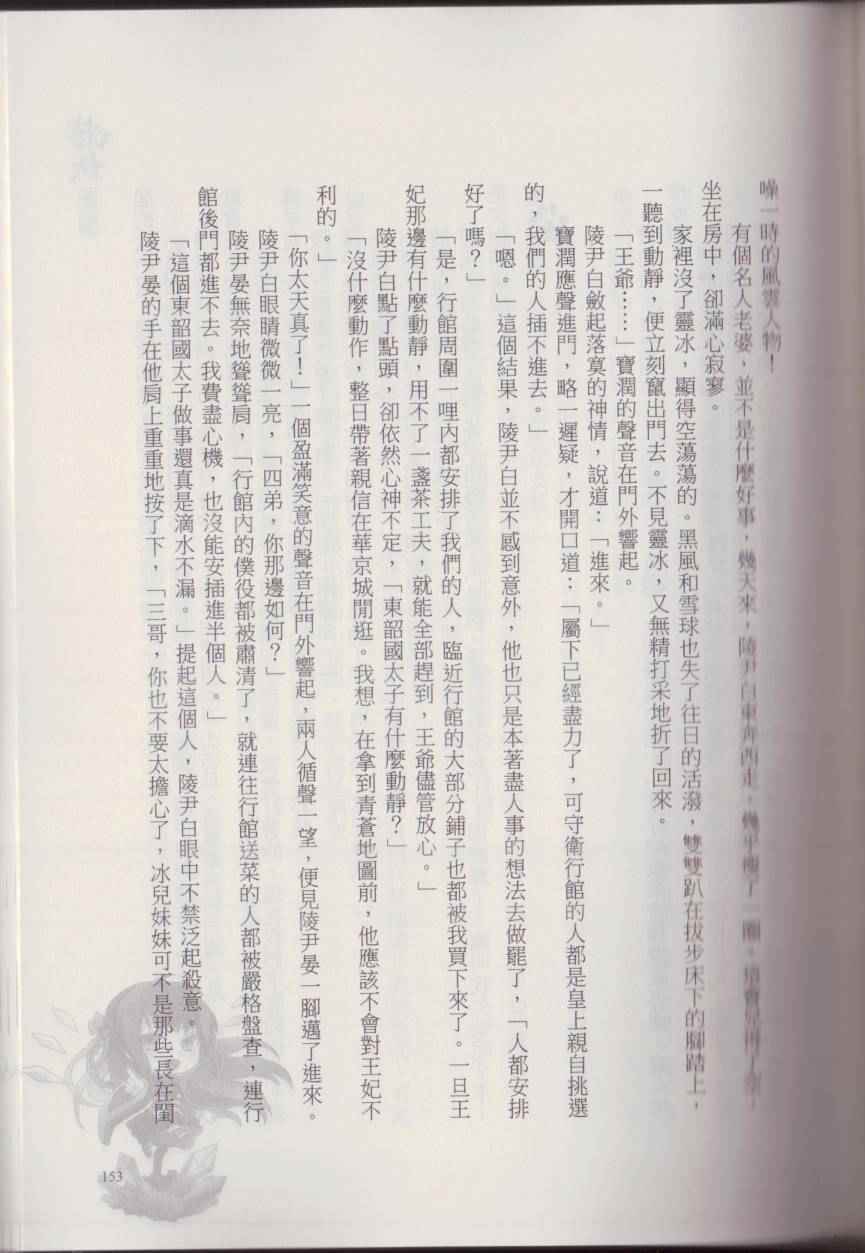 噪一時的風雲人物！
有個名人老婆，並不是什麼好事，幾天來，陵尹白東奔西走，幾乎
坐在房中，卻滿心寂寥。
家裡沒了靈冰，顯得空蕩蕩的。黑風和雪球也失了往日的活潑，雙雙趴在拔步床下的腳踏上，
一聽到動靜，便立刻竄出門去。不見靈冰，又無精打采地折了回來。
「王爺……」寶潤的聲音在門外響起。
陵尹白斂起落寞的神情，說道：「進來。」
寶潤應聲進門，略一遲疑，才開口道：「屬下已經盡力了，可守衛行館的人都是皇上親自挑選
的，我們的人插不進去。」
「嗯。」這個結果，陵尹白並不感到意外，他也只是本著盡人事的想法去做罷了，「人都安排
好了嗎？」
「是，行館周圍一哩內都安排了我們的人，臨近行館的大部分鋪子也都被我買下來了。一旦王
妃那邊有什麼動靜，用不了一盞茶工夫，就能全部趕到，王爺儘管放心。」
陵尹白點了點頭，卻依然心神不定，「東韶國太子有什麼動靜？」
「沒什麼動作，整日帶著親信在華京城閒逛。我想，在拿到青蒼地圖前，他應該不會對王妃不
利的。」
「你太天真了！」一個盈滿笑意的聲音在門外響起，兩人循聲一望，便見陵尹晏一腳邁了進來。
陵尹白眼睛微微一亮，「四弟，你那邊如何？」
陵尹晏無奈地聳聳肩，「行館內的僕役都被肅清了，就連往行館送菜的人都被嚴格盤查，連行
館後門都進不去。我費盡心機，也沒能安插進半個人。」
「這個東韶國太子做事還真是滴水不漏。」提起這個人，陵尹白眼中不禁泛起殺意。
陵尹晏的手在他肩上重重地按了下，「三哥，你也不要太擔心了，冰兒妹妹可不是那些長在閨
153